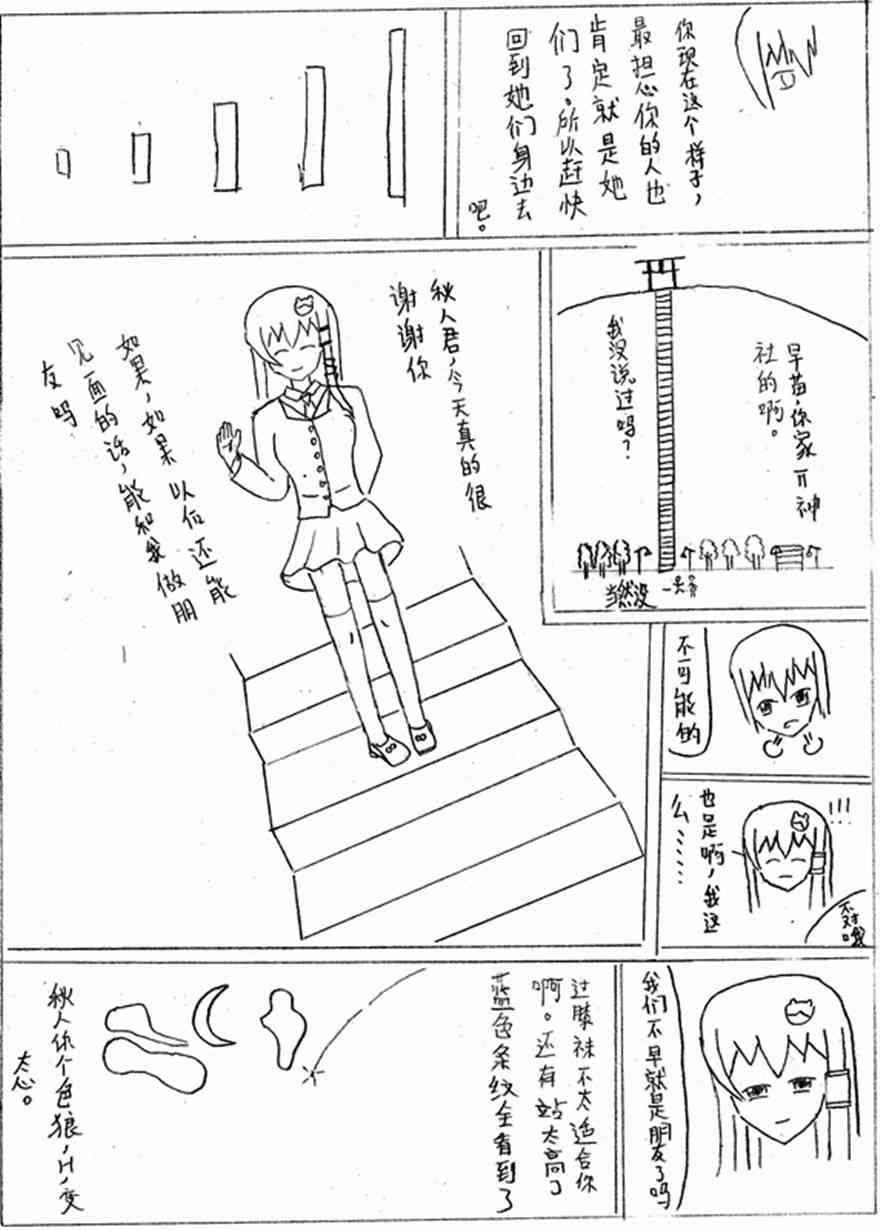 你现在这个样子，
最担心你的人也
肯定就是她
们了。所以赶快
回到她们身边去
吧。
早苗，你家开神
社的啊。
我没说过吗？
当然没
秋人君，今天真的很
谢谢你
如果，如果以后还能
见面的话，能和我做朋
友吗
不可能的
也是啊，我这
么……
不对哦
我们不早就是朋友了吗
过膝袜不太适合你
啊。还有站太高了
蓝色条纹全看到了
秋人你个色狼，H，变
太心。